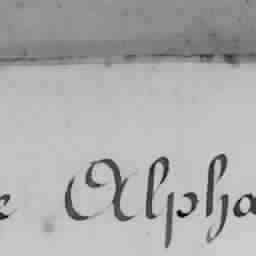 e Alpha